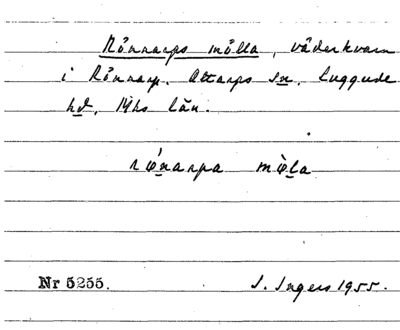 Rönnarps mölla, väderkvarn
i Rönnarp. Ottarps sn. Luggude
hd, Mhs län.
rǿnarpa mø̀la
Nr 5255. I. Ingers 1955.